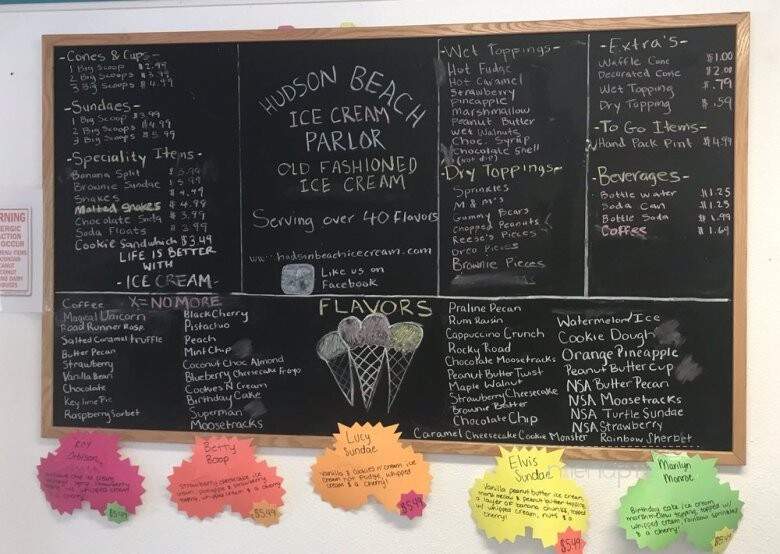 -Cones & Cups-
1 Big Scoop $2.99
2 Big Scoops
3 Big Scoops $4.99
-Sundaes-
1 Big Scoop $3.99
2 Big Scoops $4.99
3 Big Scoops $5.99
-Speciality Items-
Banana Split
Brownie Sundae
Shakes $4.99
Malted Shakes $4.99
Chocolate Soda $3.99
Soda Floats
Cookie Sandwhich $3.49
LIFE IS BETTER
WITH
-ICE CREAM-
HUDSON BEACH
ICE CREAM
PARLOR
OLD FASHIONED
ICE CREAM
Serving over 40 Flavors
www.hudsonbeachicecream.com
Like us on
Facebook
-Wet Toppings-
Hot Fudge
Hot Caramel
Strawberry
Pineapple
Marshmallow
Peanut Butter
Wet Walnuts
Choc. Syrup
Chocolate Shell
(Hot dip)
-Dry Toppings-
Sprinkles
M & M's
Gummy Bears
Chopped Peanuts
Reese's Pieces
Oreo Pieces
Brownie Pieces
-Extra's-
Waffle Cone $1.00
Decorated Cone $2.00
Wet Topping $.79
Dry Topping $.59
-To Go Items-
Hand Pack Pint $4.99
-Beverages-
Bottle Water $1.25
Soda Can $1.25
Bottle Soda $1.99
Coffee $1.69
X=NO MORE
FLAVORS
Coffee
Magical Unicorn
Road Runner Rasp.
Salted Caramel truffle
Butter Pecan
Strawberry
Vanilla Bean
Chocolate
Key lime Pie
Raspberry Sorbet
Black Cherry
Pistachio
Peach
Mint Chip
Coconut Choc Almond
Blueberry Cheesecake Froyo
Cookies N Cream
Birthday Cake
Superman
Moosetracks
Praline Pecan
Rum Raisin
Cappuccino Crunch
Rocky Road
Chocolate Moosetracks
Peanut Butter Twist
Maple Walnut
Strawberry Cheesecake
Brownie Batter
Chocolate Chip
Caramel Cheesecake Cookie Monster
Watermelon Ice
Cookie Dough
Orange Pineapple
Peanut Butter Cup
NSA Butter Pecan
NSA Moosetracks
NSA Turtle Sundae
NSA Strawberry
Rainbow Sherbet
Roy
Orbison
$5.49
Betty
Boop
Strawberry cheesecake ice
cream, pineapple & strawberry
topping, whipped cream & a cherry
$5.49
Lucy
Sundae
Vanilla & Cookies n' cream ice
cream hot fudge, whipped
cream & a cherry!
$5.49
Elvis
Sundae
Vanilla peanut butter ice cream,
marshmallow & peanut butter topping,
a layer of banana chunks, topped
w/ whipped cream, nuts & a
cherry!
$5.49
Marilyn
Monroe
Birthday cake ice cream,
marshmallow topping, topped w/
whipped cream, rainbow sprinkles
& a cherry!